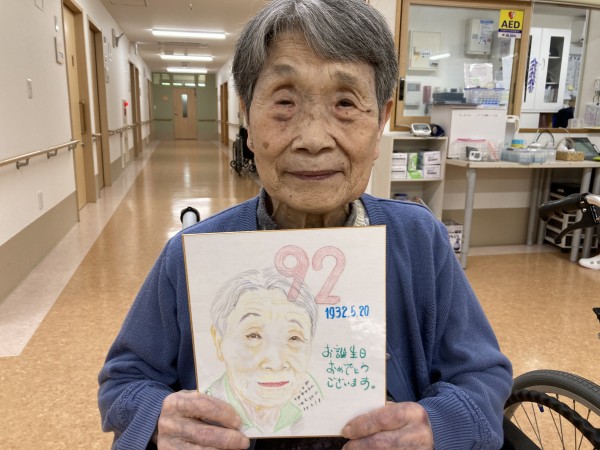 AED
92
1932.5.20
お誕生日
おめでとう
ございます。